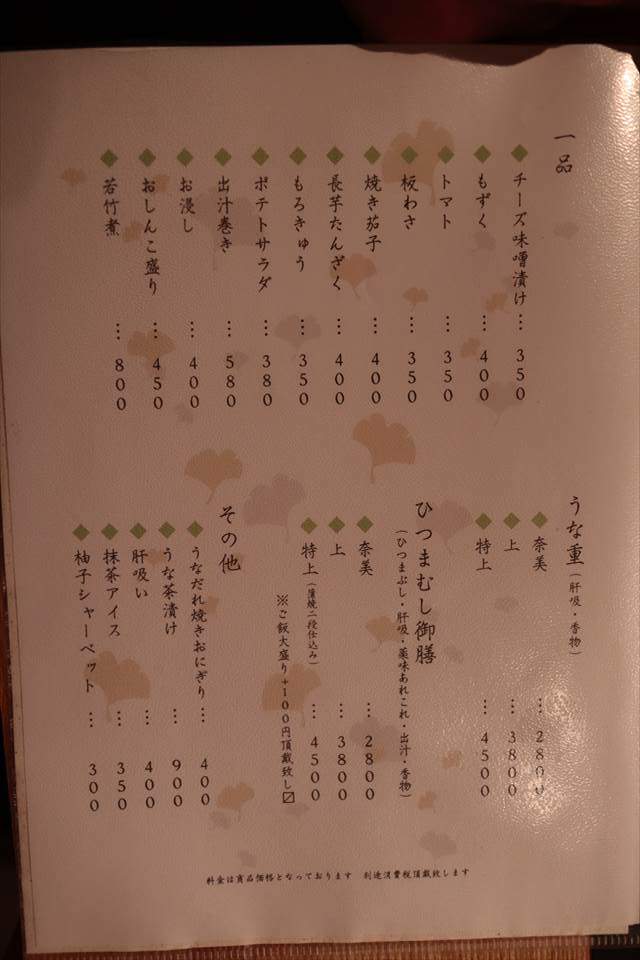 一品
チーズ味噌漬け…350
もずく…400
トマト…350
板わさ…350
焼き茄子…400
長芋たんざく…400
もろきゅう…350
ポテトサラダ…380
出汁巻き…580
お浸し…400
おしんこ盛り…450
若竹煮…800
うな重(肝吸・香物)
奈美…2800
上…3800
特上…4500
ひつまむし御膳
(ひつまぶし・肝吸・薬味あれこれ・出汁・香物)
奈美…2800
上…3800
特上(蒲焼二段仕込み)…4500
※ご飯大盛り+100円頂戴致し〼
その他
うなだれ焼きおにぎり…400
うな茶漬け…900
肝吸い…400
抹茶アイス…350
柚子シャーベット…300
料金は商品価格となっております 別途消費税頂戴致します